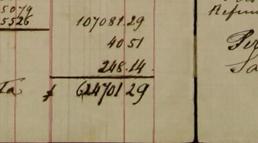 5079
5526
107081.29
40 51
248.14.
ta $ 624701 29
Per